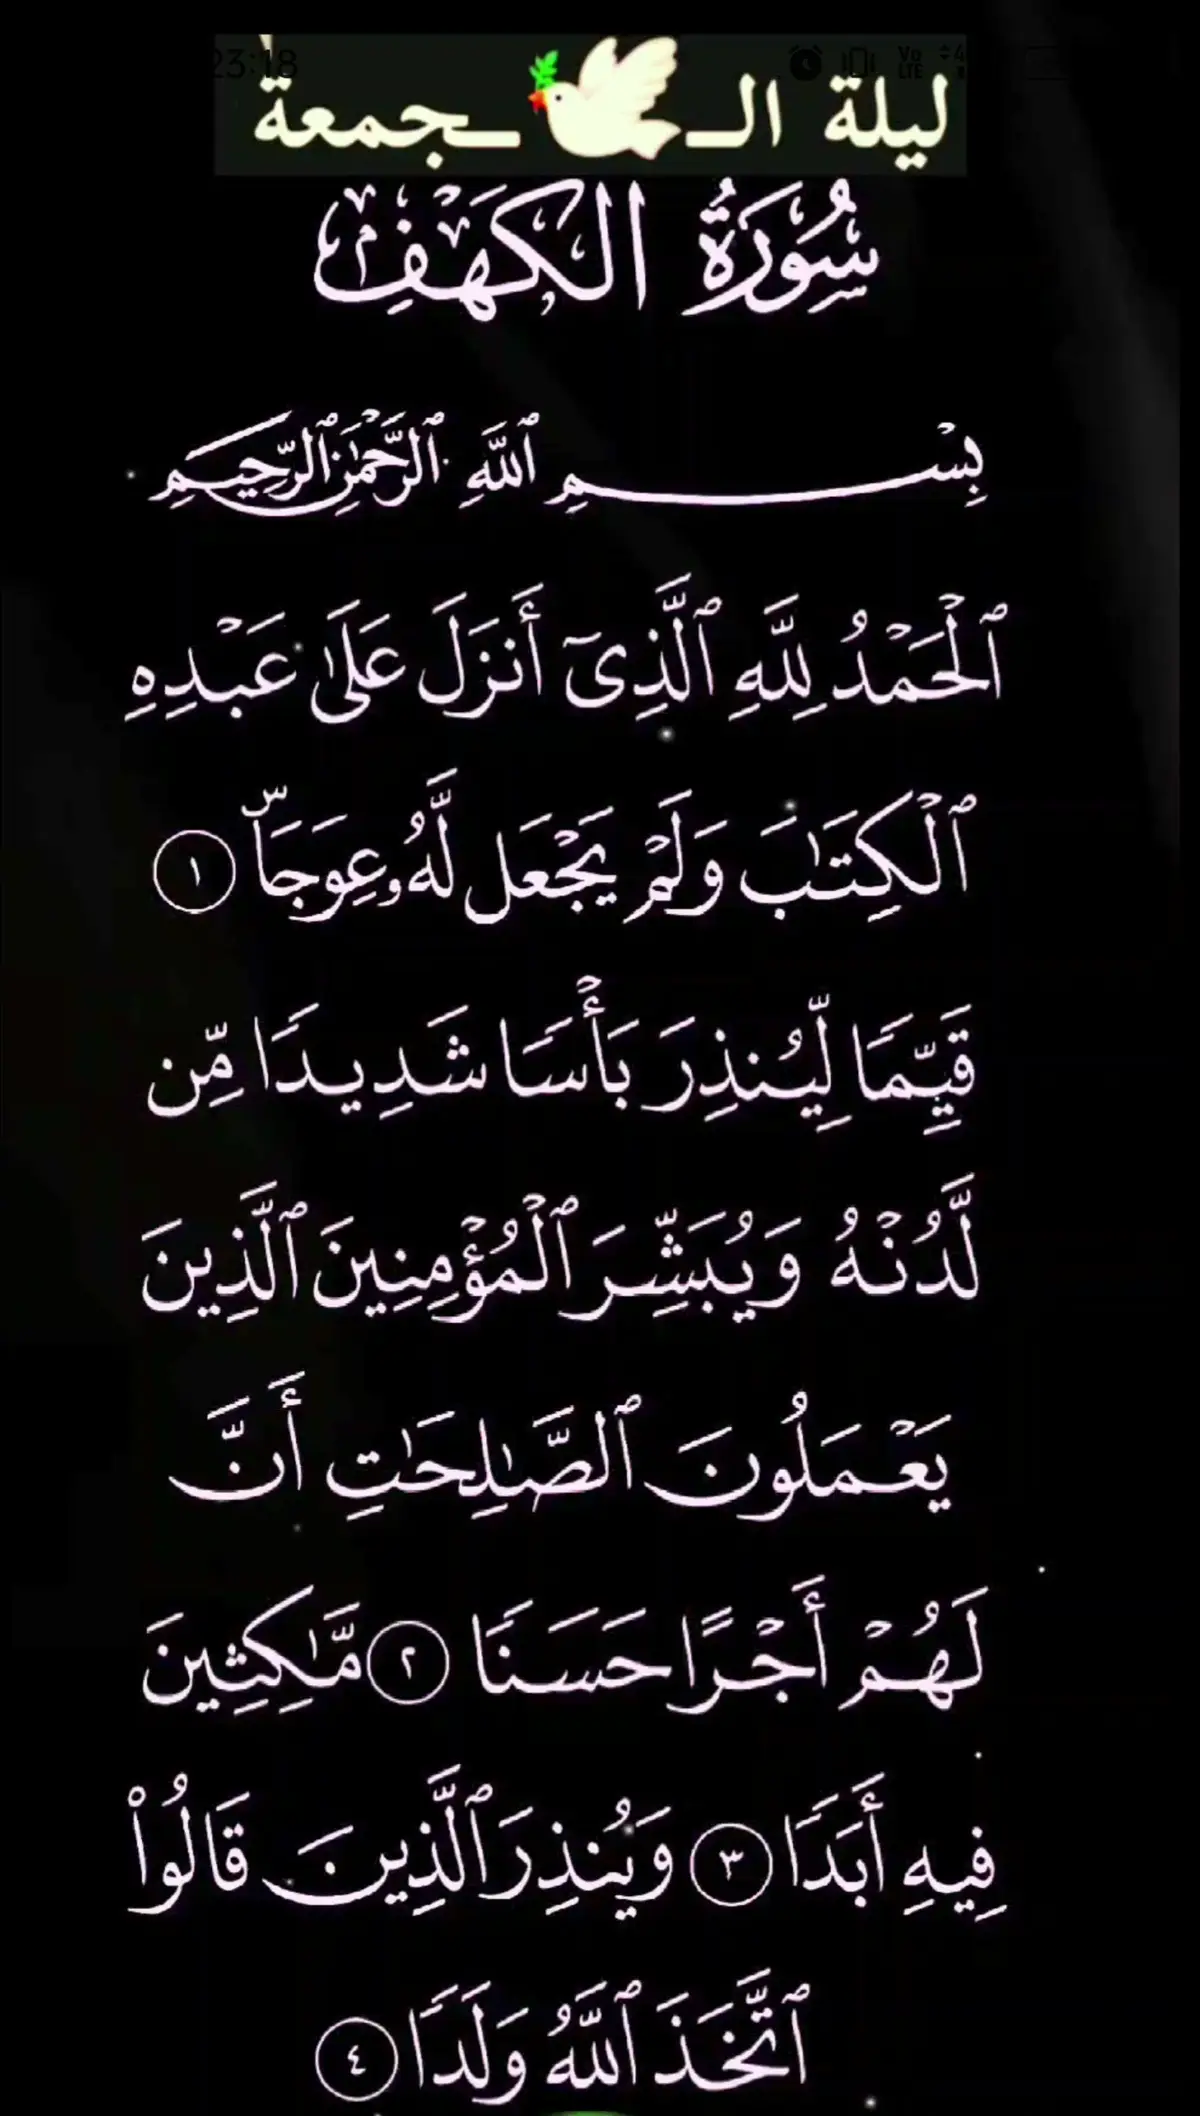 23:18
ليلة الـ🕊️ـجمعة
سُورَةُ الكَهْفِ
بِسْمِ ٱللَّهِ ٱلرَّحْمَٰنِ ٱلرَّحِيمِ
ٱلْحَمْدُ لِلَّهِ ٱلَّذِىٓ أَنزَلَ عَلَىٰ عَبْدِهِ
ٱلْكِتَٰبَ وَلَمْ يَجْعَل لَّهُۥ عِوَجَاۜ ١
قَيِّمًا لِّيُنذِرَ بَأْسًا شَدِيدًا مِّن
لَّدُنْهُ وَيُبَشِّرَ ٱلْمُؤْمِنِينَ ٱلَّذِينَ
يَعْمَلُونَ ٱلصَّٰلِحَٰتِ أَنَّ
لَهُمْ أَجْرًا حَسَنًا ٢ مَّٰكِثِينَ
فِيهِ أَبَدًا ٣ وَيُنذِرَ ٱلَّذِينَ قَالُوا۟
ٱتَّخَذَ ٱللَّهُ وَلَدًا ٤